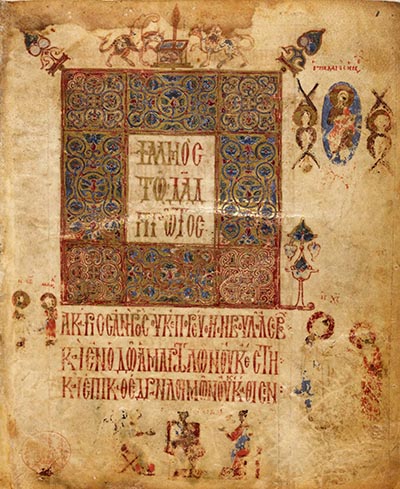 ΨΑΛΜΟΣ
ΤΩ ΔΑΔ
ΠΡΩΤΟΣ
ΜΑΚΑΡΙΟΣ ΑΝΗΡ ΟΣ ΟΥΚ ΕΠΟΡΕΥΘΗ ΕΝ ΒΟΥΛΗ ΑΣΕΒ
ΚΑΙ ΕΝ ΟΔΩ ΑΜΑΡΤΩΛΩΝ ΟΥΚ ΕΣΤΗ
ΚΑΙ ΕΠΙ ΚΑΘΕΔΡΑΝ ΛΟΙΜΩΝ ΟΥΚ ΕΚΑΘΙΣΕΝ